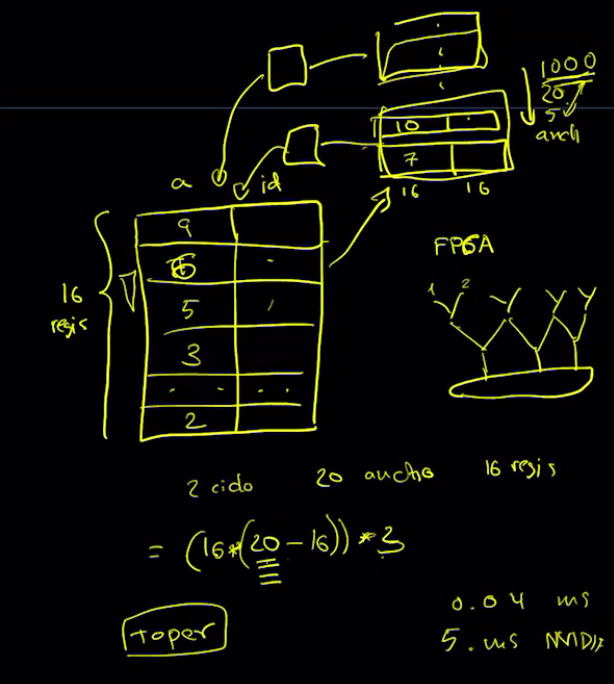 1000
20
5
anch
10
7
16 16
a id
9
6
5
3
. . . .
2
16
regis
FPGA
1 2
2 ciclo 20 ancho 16 regis
= (16*(20-16))*3
toper
0.04 ms
5. ms NVIDIA